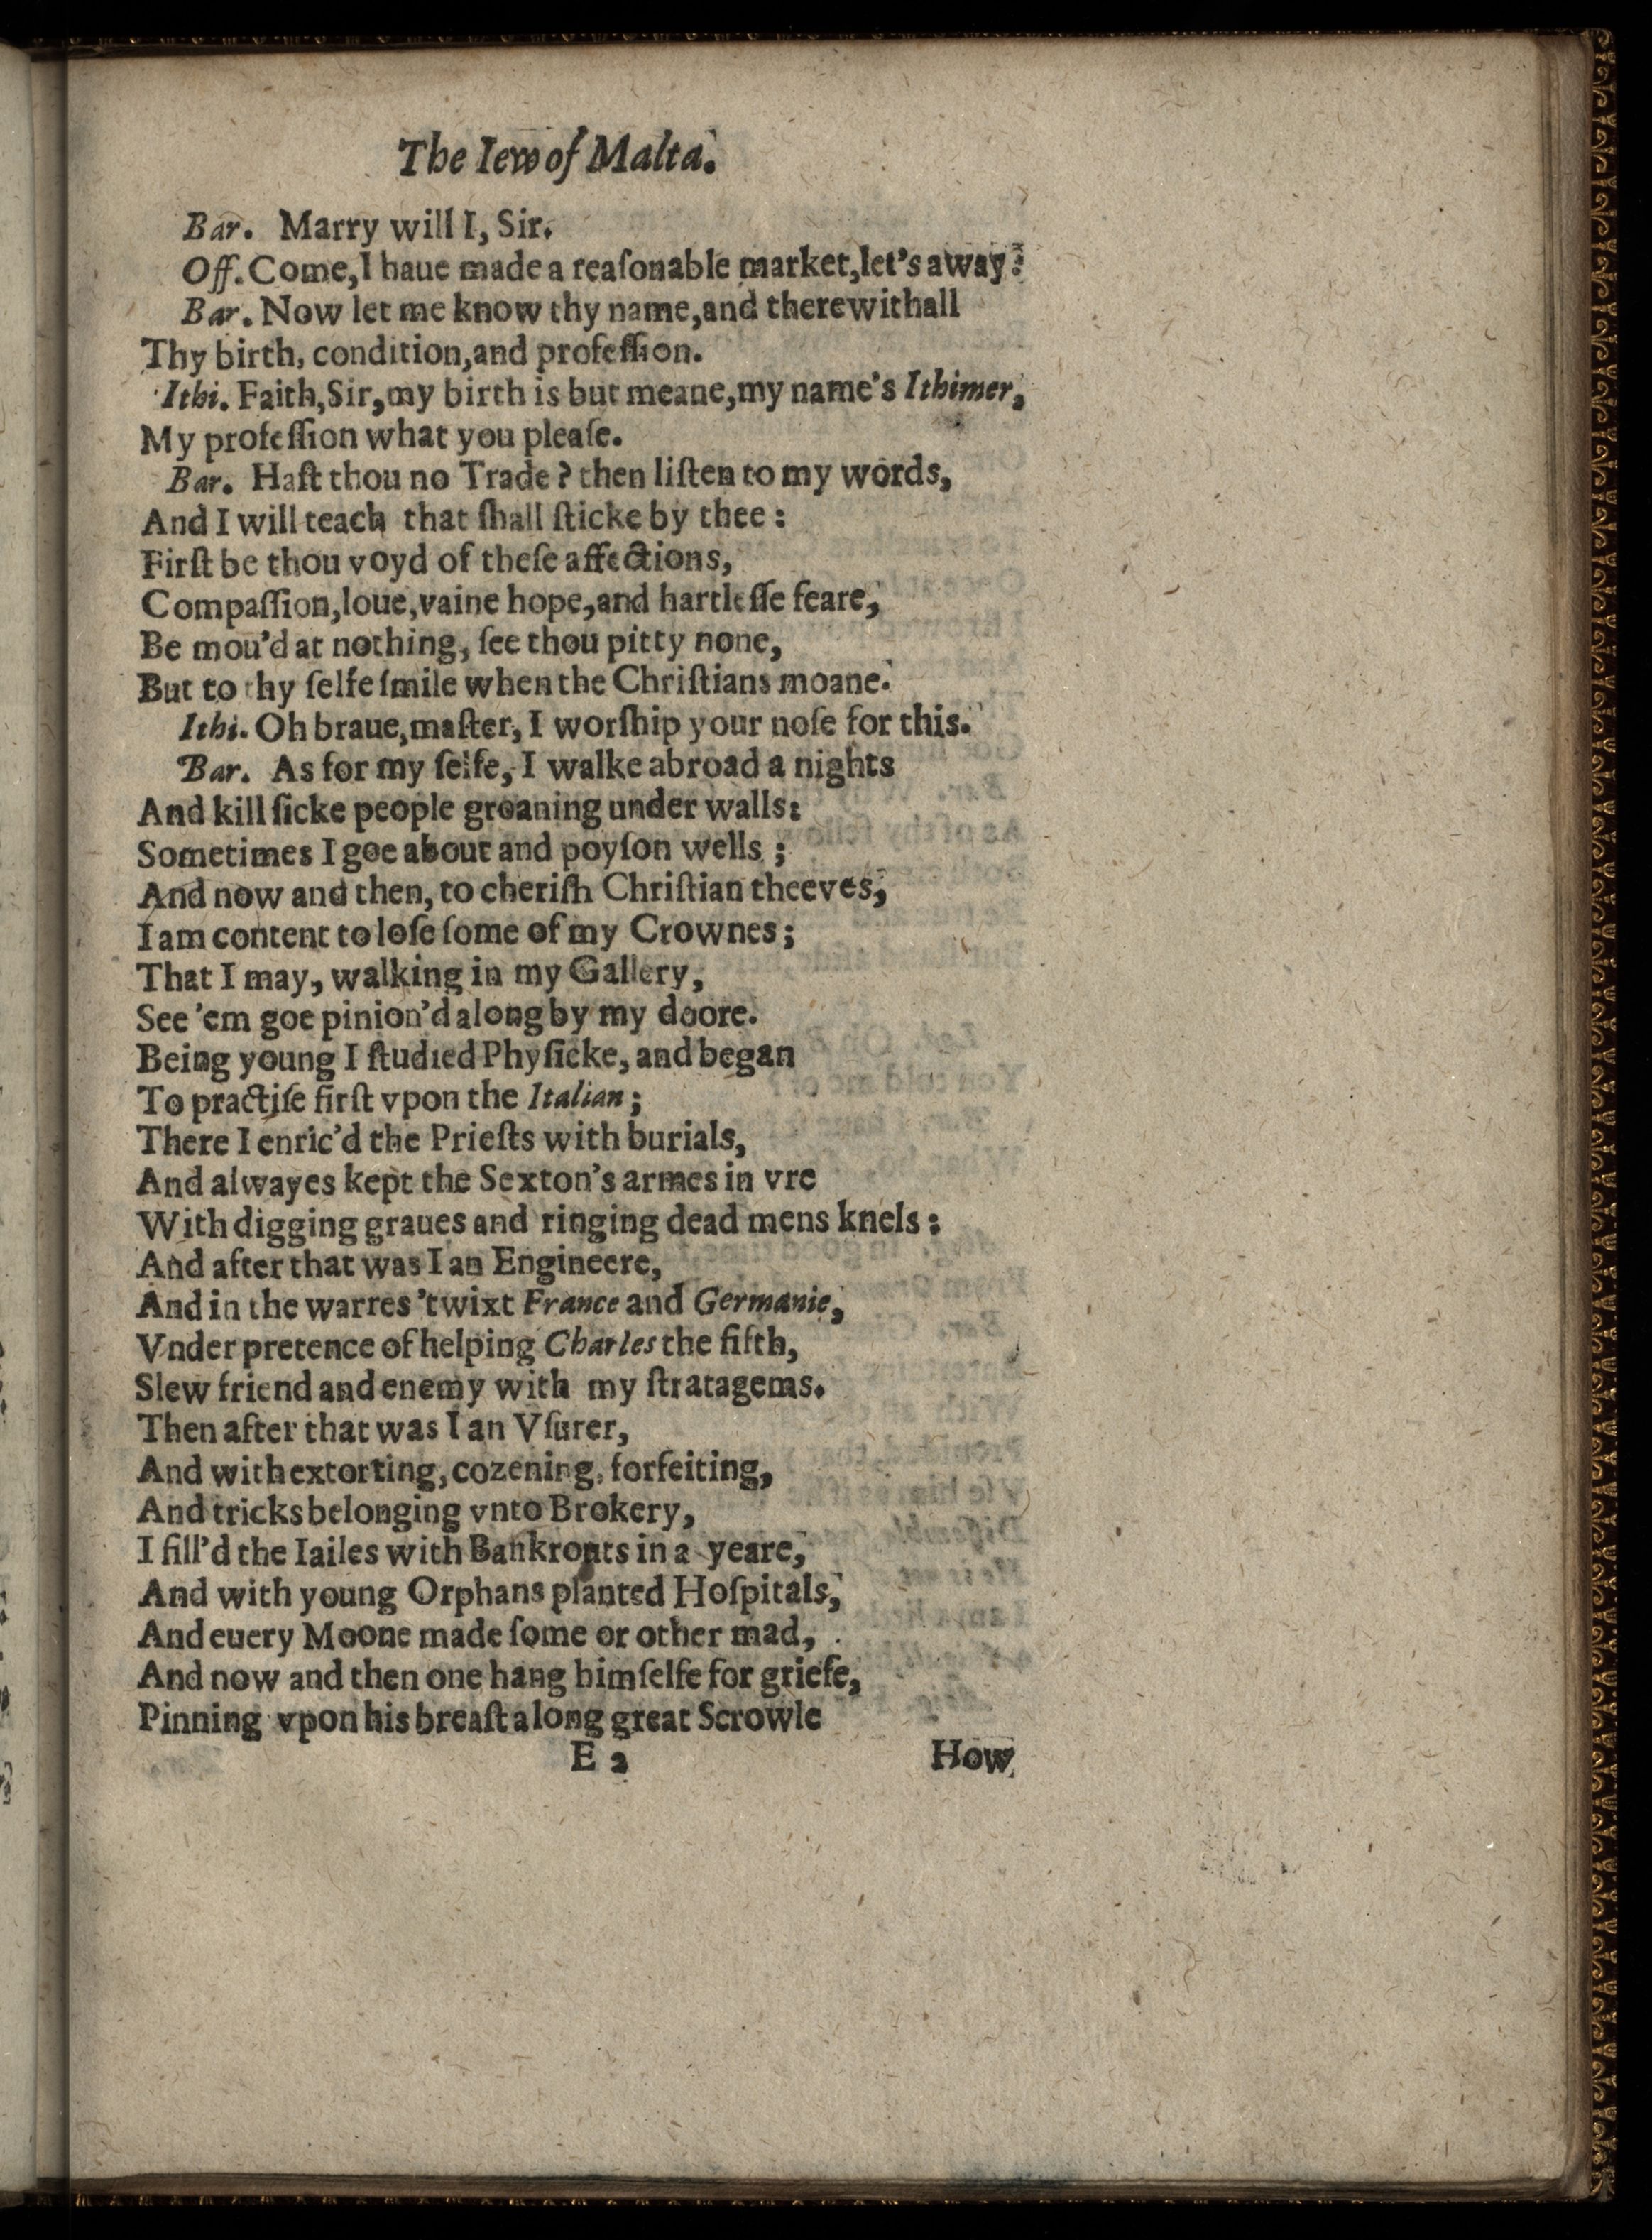 The Iew of Malta.
Bar. Marry will I, Sir.
Off. Come, I haue made a reaſonable market, let's away:
Bar. Now let me know thy name, and therewithall
Thy birth, condition, and profeſſion.
Ithi. Faith, Sir, my birth is but meane, my name's Ithimer,
My profeſſion what you pleaſe.
Bar. Haſt thou no Trade? then liſten to my words,
And I will teach that ſhall ſticke by thee:
Firſt be thou voyd of theſe affections,
Compaſſion, loue, vaine hope, and hartleſſe feare,
Be mou'd at nothing, ſee thou pitty none,
But to thy ſelfe ſmile when the Chriſtians moane.
Ithi. Oh braue, maſter, I worſhip your noſe for this.
Bar. As for my ſelfe, I walke abroad a nights
And kill ſicke people groaning under walls:
Sometimes I goe about and poyſon wells;
And now and then, to cheriſh Chriſtian theeves,
I am content to loſe ſome of my Crownes;
That I may, walking in my Gallery,
See 'em goe pinion'd along by my doore.
Being young I ſtudied Phyſicke, and began
To practiſe firſt vpon the Italian;
There I enric'd the Prieſts with burials,
And alwayes kept the Sexton's armes in vre
With digging graues and ringing dead mens knels:
And after that was I an Engineere,
And in the warres 'twixt France and Germanie,
Vnder pretence of helping Charles the fifth,
Slew friend and enemy with my ſtratagems.
Then after that was I an Vſurer,
And with extorting, cozening, forfeiting,
And tricks belonging vnto Brokery,
I fill'd the Iailes with Bankrouts in a yeare,
And with young Orphans planted Hoſpitals,
And euery Moone made ſome or other mad,
And now and then one hang himſelfe for griefe,
Pinning vpon his breaſt a long great Scrowle
E 2 How